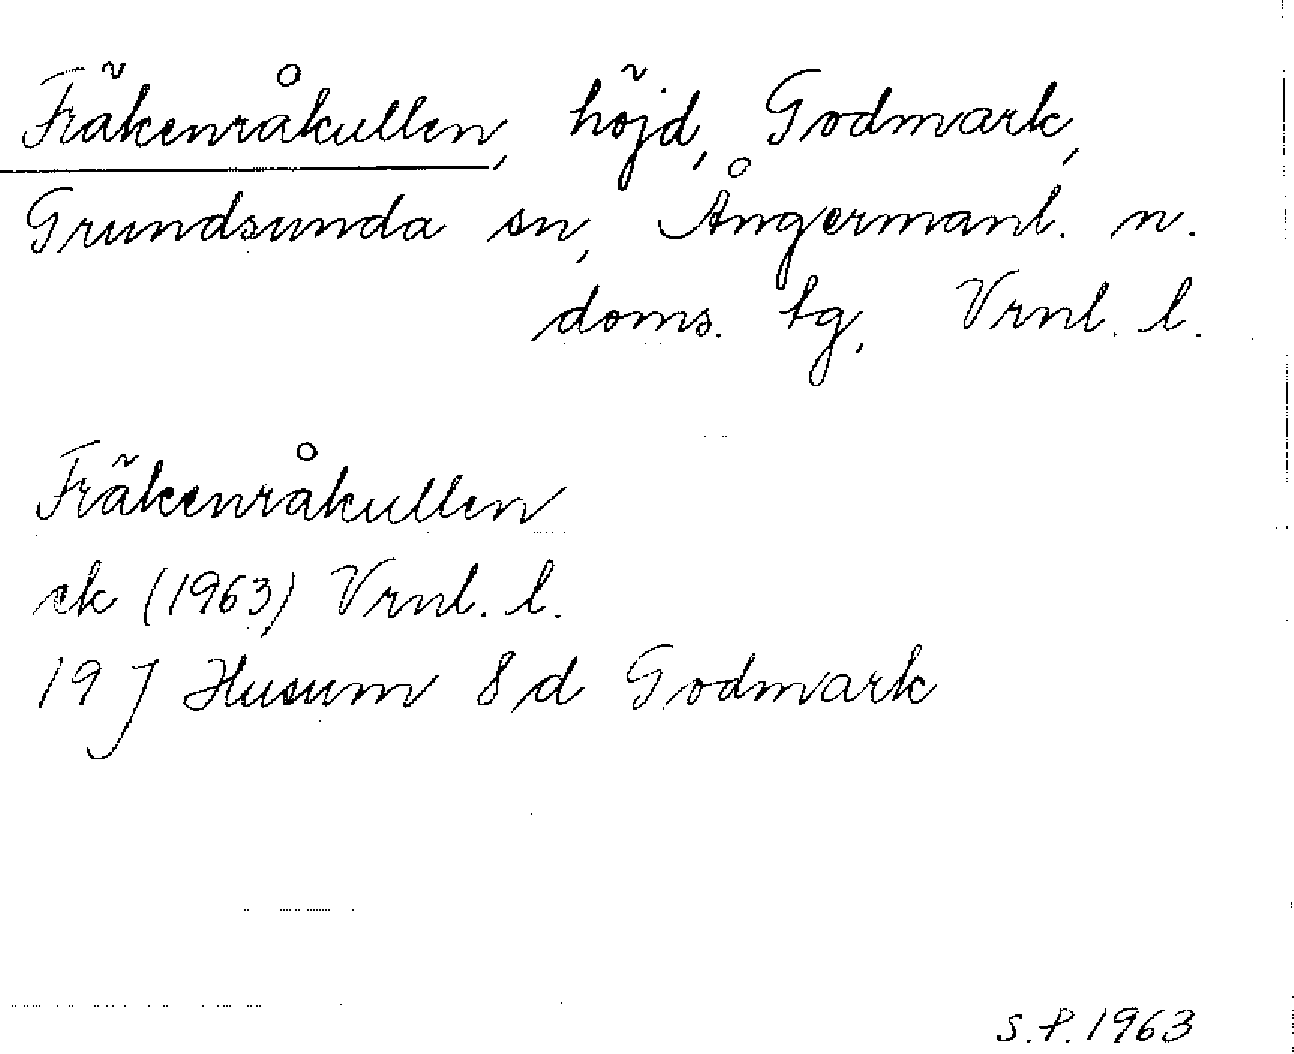 Fräkenråkullen, höjd, Godmark,
Grundsunda sn, Ångermanl. n.
doms. tg, Vrnl. l.
Fräkenråkullen
ek (1963) Vrnl. l.
19 J Husum 8 d Godmark
S.P. 1963